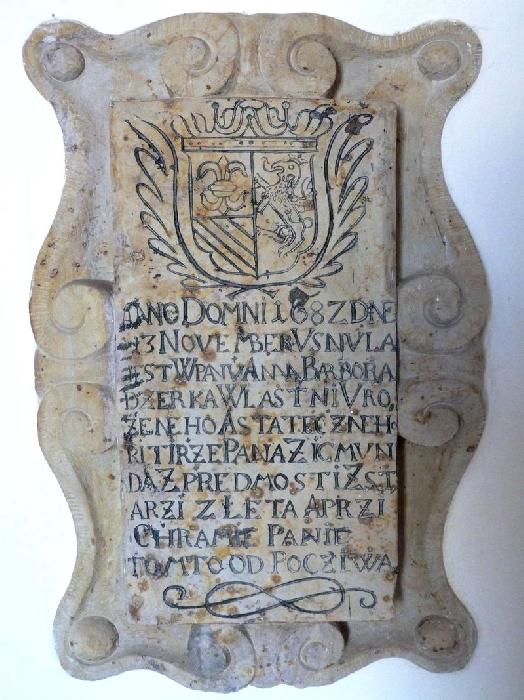 ANNO DOMNI 1682 DNE
13 NOVEMBERUSNULA
GEST W PANU ANNA BARBORA
DZERKA WLASTNI URO,
ZENEHO A STATECZNEH,
RITIRZE PANA ZIGMUN
DA Z PREDMOSTI Z ST
ARZI Z LETA A PRZI
CHRAMIE PANIE
TOMTO OD POCZIWA